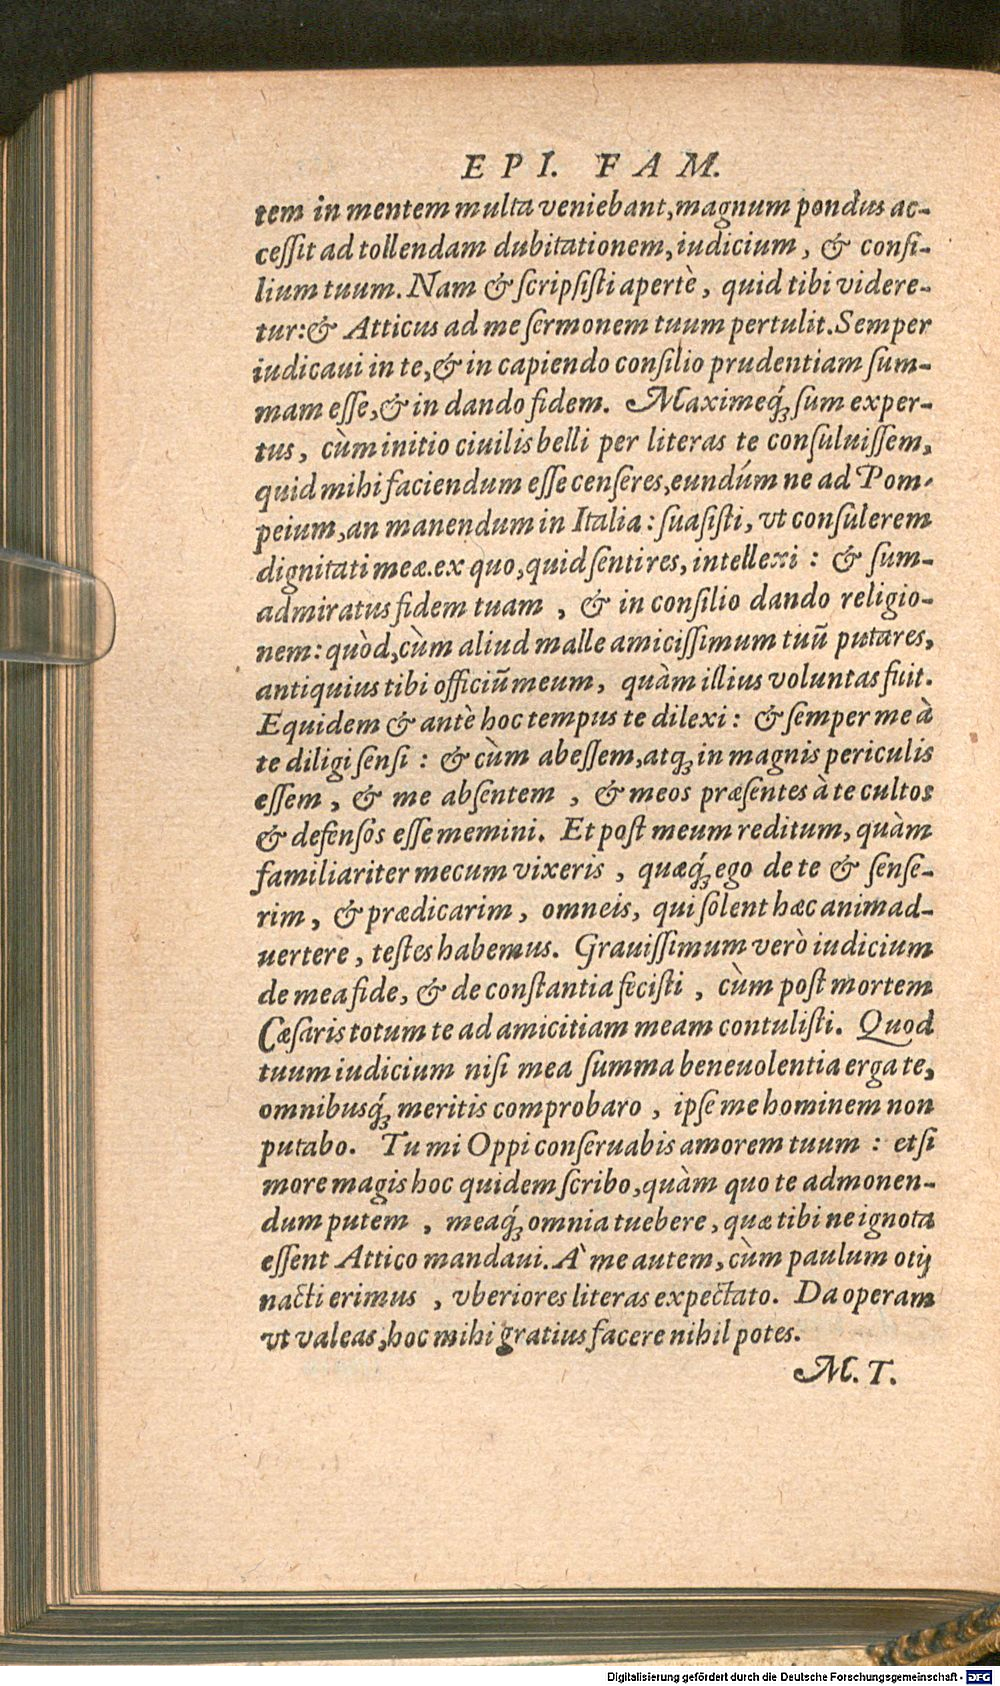 EPI. FAM.
tem in mentem multa veniebant, magnum pondus ac-
ceſſit ad tollendam dubitationem, iudicium, & conſi-
lium tuum. Nam & ſcripſiſti apertè, quid tibi videre-
tur: & Atticus ad me ſermonem tuum pertulit. Semper
iudicaui in te, & in capiendo conſilio prudentiam ſum-
mam eſſe, & in dando fidem. Maximeq́ꝫ ſum exper-
tus, cùm initio ciuilis belli per literas te conſuluiſſem,
quid mihi faciendum eſſe cenſeres, eundúm ne ad Pom-
peium, an manendum in Italia: ſuaſiſti, vt conſulerem
dignitati meæ. ex quo, quid ſentires, intellexi: & ſum-
admiratus fidem tuam, & in conſilio dando religio-
nem: quòd, cùm aliud malle amiciſſimum tuū putares,
antiquius tibi officiū meum, quàm illius voluntas fuit.
Equidem & antè hoc tempus te dilexi: & ſemper me à
te diligi ſenſi: & cùm abeſſem, atqꝫ in magnis periculis
eſſem, & me abſentem, & meos præſentes à te cultos
& defenſos eſſe memini. Et poſt meum reditum, quàm
familiariter mecum vixeris, quæq́ꝫ ego de te & ſenſe-
rim, & prædicarim, omneis, qui ſolent hæc animad-
uertere, teſtes habemus. Grauiſſimum verò iudicium
de mea fide, & de conſtantia feciſti, cùm poſt mortem
Cæſaris totum te ad amicitiam meam contuliſti. Quod
tuum iudicium niſi mea ſumma beneuolentia erga te,
omnibusq́ꝫ meritis comprobaro, ipſe me hominem non
putabo. Tu mi Oppi conſeruabis amorem tuum: etſi
more magis hoc quidem ſcribo, quàm quo te admonen-
dum putem, meaq́ꝫ omnia tuebere, quæ tibi ne ignota
eſſent Attico mandaui. À me autem, cùm paulum otij
nacti erimus, vberiores literas expectato. Da operam
vt valeas, hoc mihi gratius facere nihil potes.
M. T.
Digitalisierung gefördert durch die Deutsche Forschungsgemeinschaft - DFG